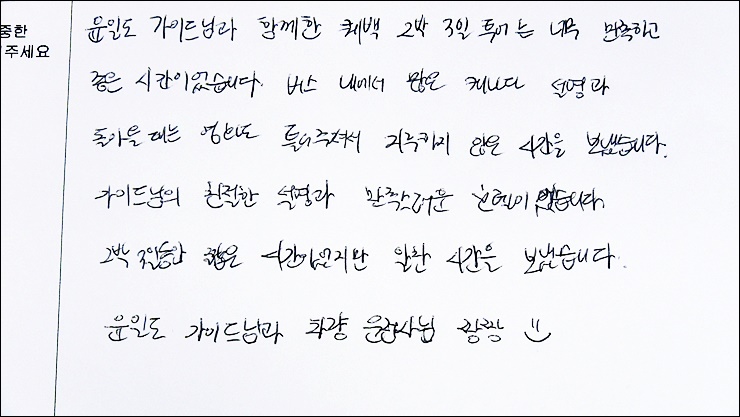 중한
주세요
윤일도 가이드님과 함께한 퀘백 2박 3일 투어는 너무 만족하고
좋은 시간이었습니다. 버스 내에서 많은 캐나다 설명과
돌아올 때는 영화도 틀어주셔서 지루하지 않은 시간을 보냈습니다.
가이드님의 친절한 설명과 만족스러운 여행이었습니다.
2박 3일동안 짧은 시간이었지만 알찬 시간을 보냈습니다.
윤일도 가이드님과 차량 운전사님 짱짱